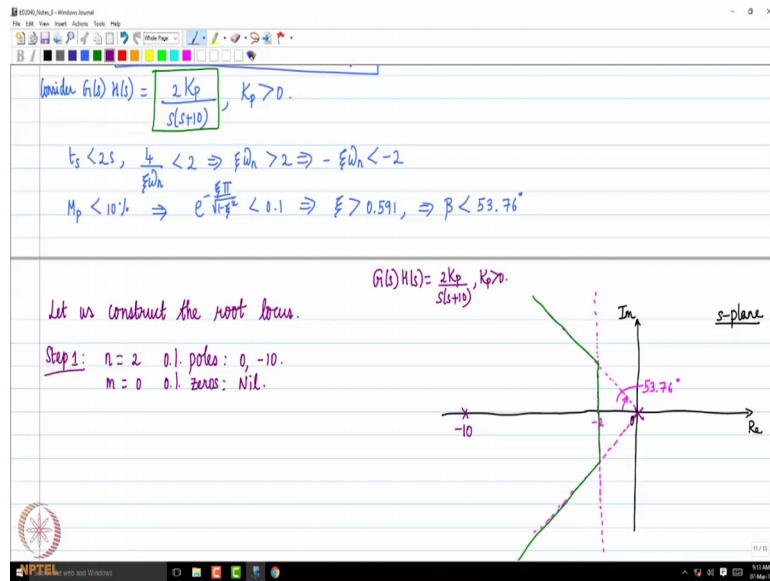 ED2040_Notes_5 - Windows Journal
File Edit View Insert Actions Tools Help
Whole Page
B I
Consider G(s) H(s) = 2Kp / s(s+10) , Kp > 0.
ts < 2s, 4/ξωn < 2 ⇒ ξωn > 2 ⇒ - ξωn < -2
Mp < 10% ⇒ e^(-ξπ/√(1-ξ²)) < 0.1 ⇒ ξ > 0.591, ⇒ β < 53.76°
G(s) H(s) = 2Kp / s(s+10) , Kp > 0.
Let us construct the root locus.
Step 1: n = 2 o.l. poles: 0, -10.
m = 0 o.l. zeros: Nil.
Im
s-plane
53.76°
-10
-2
0
Re
11 / 11
NPTEL
web and Windows
9:13 AM